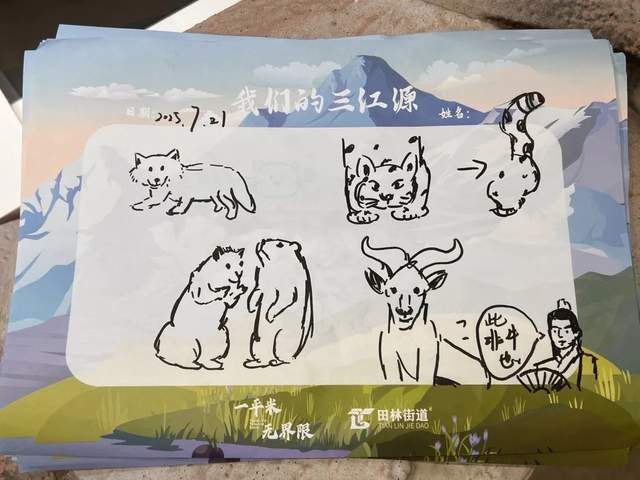 我们的三江源
日期: 2025.7.21
姓名:
此
非牛
也
一平米
无界限
田林街道
TIAN LIN JIE DAO